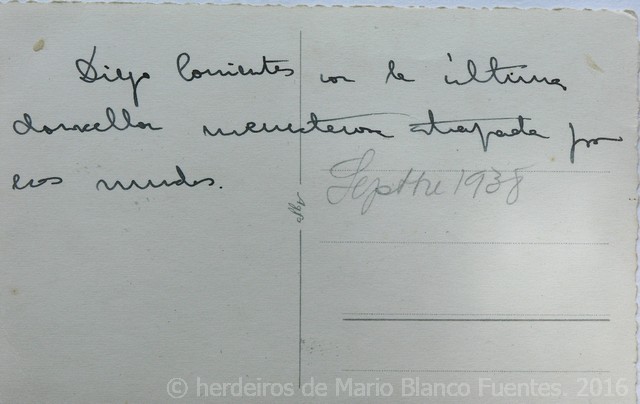 Diego Corrientes con la última
doncella menesterosa atrapada por
sus nudos.
Septbre 1938
Agfa
© herdeiros de Mario Blanco Fuentes. 2016